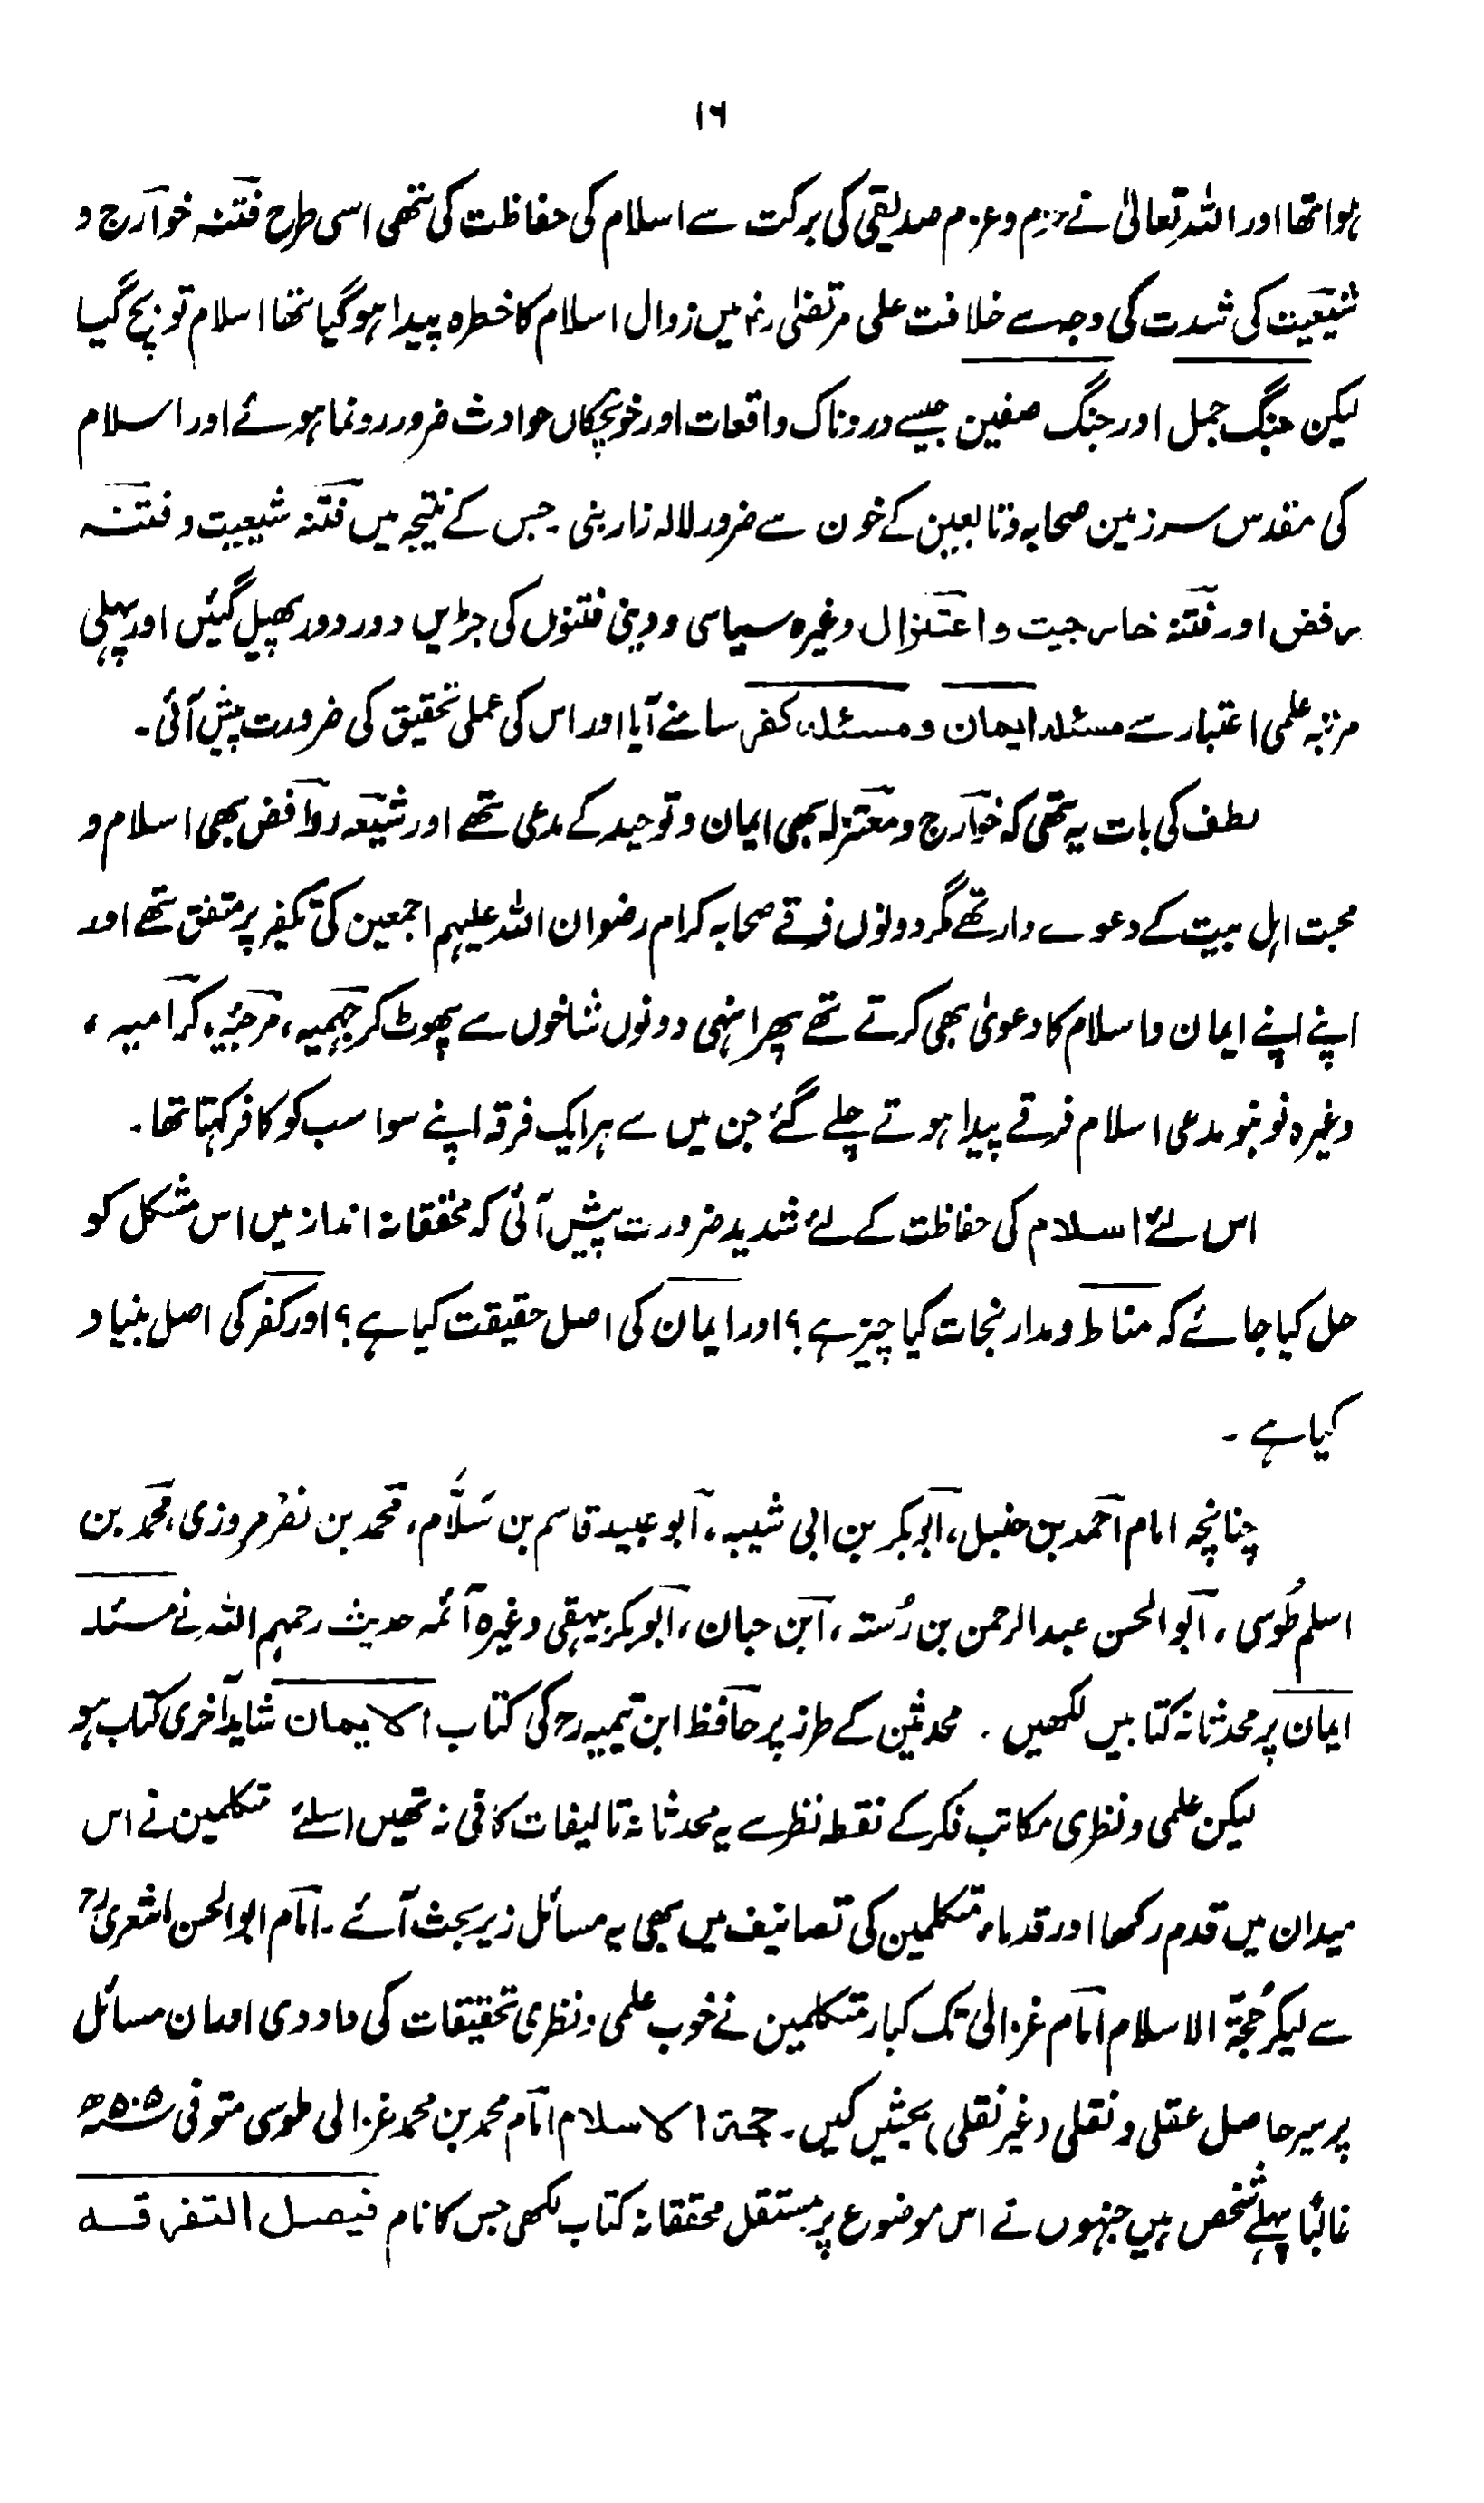 ۱۶
ہوا تھا اور اللہ تعالیٰ نے حزم و عزم صدیقی کی برکت سے اسلام کی حفاظت کی تھی اسی طرح فتنہ خوارج و
شیعیت کی شدت کی وجہ سے خلافت علی مرتضیٰ رضہ میں زوال اسلام کا خطرہ پیدا ہو گیا تھا اسلام تو بچ گیا
لیکن جنگ جمل اور جنگ صفین جیسے دردناک واقعات اور خونچکاں حوادث ضرور رونما ہوئے اور اسلام
کی مقدس سرزمین صحابہ و تابعین کے خون سے ضرور لالہ زار بنی جس کے نتیجہ میں فتنہ شیعیت و فتنہ
رفض اور فتنہ خارجیت و اعتزال وغیرہ سیاسی و دینی فتنوں کی جڑیں دور دور پھیل گئیں اور پہلی
مرتبہ علمی اعتبار سے مسئلہ ایمان و مسئلہ کفر سامنے آیا اور اس کی عملی تحقیق کی ضرورت پیش آئی۔
لطف کی بات یہ تھی کہ خوارج و معتزلہ بھی ایمان و توحید کے مدعی تھے اور شیعہ روافض بھی اسلام و
محبت اہل بیت کے دعوے دار تھے مگر دونوں فرقے صحابہ کرام رضوان اللہ علیہم اجمعین کی تکفیر پر متفق تھے اور
اپنے اپنے ایمان و اسلام کا دعویٰ بھی کرتے تھے پھر انہی دونوں شاخوں سے پھوٹ کر جہمیہ، مرجئہ، کرامیہ،
وغیرہ نو بنو مدعی اسلام فرقے پیدا ہوتے چلے گئے جن میں سے ہر ایک فرقہ اپنے سوا سب کو کافر کہتا تھا۔
اس لئے اسلام کی حفاظت کے لئے شدید ضرورت پیش آئی کہ محققانہ انداز میں اس مشکل کو
حل کیا جائے کہ مناط و مدار نجات کیا چیز ہے؟ اور ایمان کی اصل حقیقت کیا ہے؟ اور کفر کی اصل بنیاد
کیا ہے۔
چنانچہ امام احمد بن حنبل، ابوبکر بن ابی شیبہ، ابو عبید قاسم بن سَلَّام، محمد بن نصر مروزی، محمد بن
اسلم طُوسی، ابوالحسن عبدالرحمن بن رُستہ، ابن حبان، ابوبکر بیہقی وغیرہ آئمہ حدیث رحمہم اللہ نے مسئلہ
ایمان پر محدثانہ کتابیں لکھیں۔ محدثین کے طرز پر حافظ ابن تیمیہ رح کی کتاب الایمان شاید آخری کتاب ہو
لیکن علمی و نظری مکاتب فکر کے نقطہ نظر سے یہ محدثانہ تالیفات کافی نہ تھیں اسلئے متکلمین نے اس
میدان میں قدم رکھا اور قدماء متکلمین کی تصانیف میں بھی یہ مسائل زیر بحث آئے۔ امام ابوالحسن اشعریؒ
سے لیکر حُجۃ الاسلام امام غزالی تک کبار متکلمین نے خوب علمی و نظری تحقیقات کی داد دی اور ان مسائل
پر سیر حاصل عقلی و نقلی (غیر نقلی) بحثیں کیں۔ حجۃ الاسلام امام محمد بن محمد غزالی طوسی متوفی ۵۰۵ھ
غالباً پہلے شخص ہیں جنہوں نے اس موضوع پر مستقل محققانہ کتاب لکھی جس کا نام فیصل التفرقہ